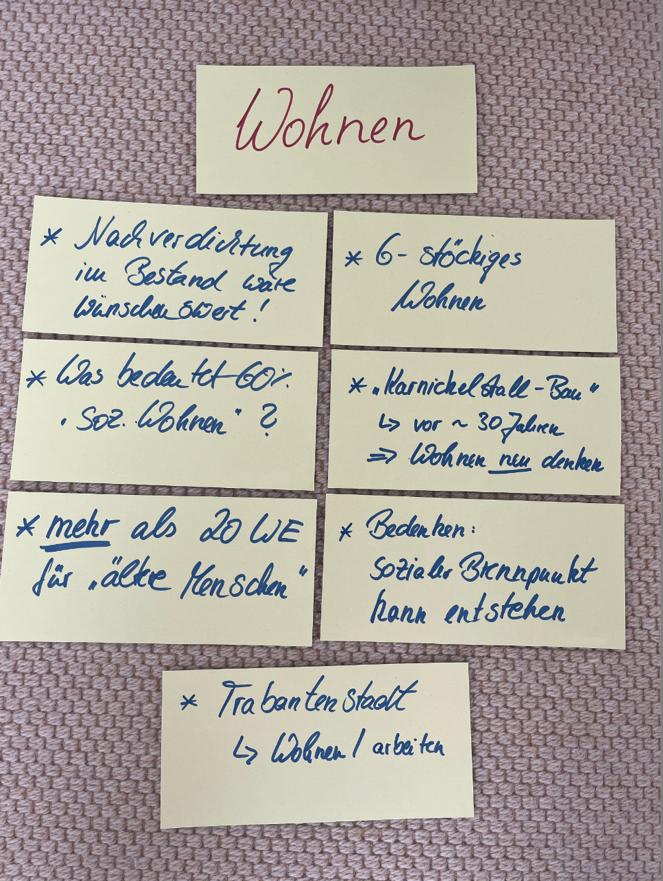 Wohnen
* Nachverdichtung
im Bestand wäre
wünschenswert!
* 6-stöckiges
Wohnen
* Was bedeutet 60%
"soz. Wohnen"?
* „Karnickelstall-Bau“
↳ vor ~ 30 Jahren
⇒ Wohnen neu denken
* mehr als 20 WE
für „ältere Menschen“
* Bedenken:
sozialer Brennpunkt
kann entstehen
* Trabantenstadt
↳ Wohnen / arbeiten